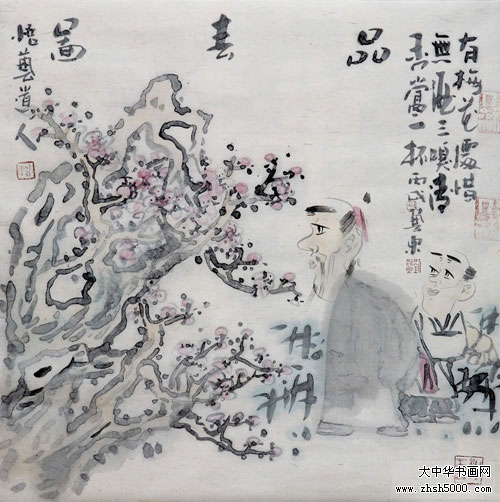 品春啚
有梅花處惜
無酒三嗅清
香當一杯丙戌
悟藝道人
大中华书画网
www.zhsh5000.com